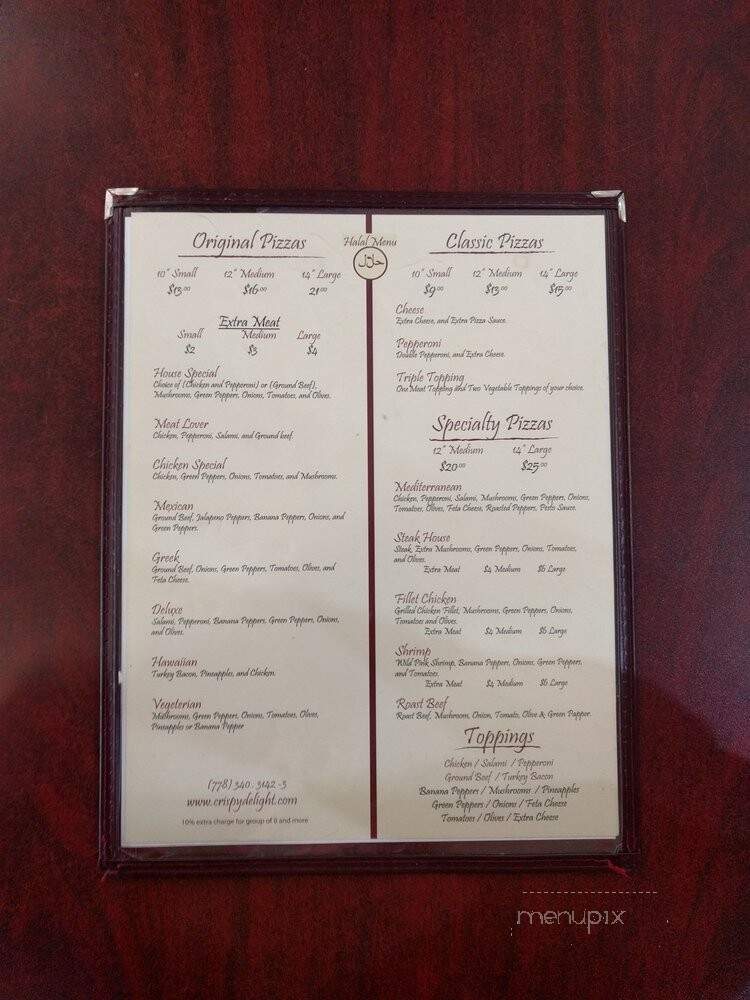 Original Pizzas
10" Small 12" Medium 14" Large
$13.00 $16.00 21.00
Extra Meat
Small Medium Large
$2 $3 $4
House Special
Choice of (Chicken and Pepperoni) or (Ground Beef),
Mushrooms, Green Peppers, Onions, Tomatoes, and Olives.
Meat Lover
Chicken, Pepperoni, Salami, and Ground beef.
Chicken Special
Chicken, Green Peppers, Onions, Tomatoes, and Mushrooms.
Mexican
Ground Beef, Jalapeno Peppers, Banana Peppers, Onions, and
Green Peppers.
Greek
Ground Beef, Onions, Green Peppers, Tomatoes, Olives, and
Feta Cheese.
Deluxe
Salami, Pepperoni, Banana Peppers, Green Peppers, Onions,
and Olives.
Hawaiian
Turkey Bacon, Pineapples, and Chicken.
Vegeterian
Mushrooms, Green Peppers, Onions, Tomatoes, Olives,
Pineapples or Banana Pepper
(778) 340. 3142 -3
www.crispydelight.com
10% extra charge for group of 8 and more
Halal Menu
حلال
Classic Pizzas
10" Small 12" Medium 14" Large
$9.00 $13.00 $15.00
Cheese
Extra Cheese, and Extra Pizza Sauce.
Pepperoni
Double Pepperoni, and Extra Cheese.
Triple Topping
One Meat Topping and Two Vegetable Toppings of your choice.
Specialty Pizzas
12" Medium 14" Large
$20.00 $25.00
Mediterranean
Chicken, Pepperoni, Salami, Mushrooms, Green Peppers, Onions,
Tomatoes, Olives, Feta Cheese, Roasted Peppers, Pesto Sauce.
Steak House
Steak, Extra Mushrooms, Green Peppers, Onions, Tomatoes,
and Olives.
Extra Meat $4 Medium $6 Large
Fillet Chicken
Grilled Chicken Fillet, Mushrooms, Green Peppers, Onions,
Tomatoes and Olives.
Extra Meat $4 Medium $6 Large
Shrimp
Wild Pink Shrimp, Banana Peppers, Onions, Green Peppers,
and Tomatoes.
Extra Meat $4 Medium $6 Large
Roast Beef
Roast Beef, Mushroom, Onion, Tomato, Olive & Green Papper.
Toppings
Chicken / Salami / Pepperoni
Ground Beef / Turkey Bacon
Banana Peppers / Mushrooms / Pineapples
Green Peppers / Onions / Feta Cheese
Tomatoes / Olives / Extra Cheese
menupix